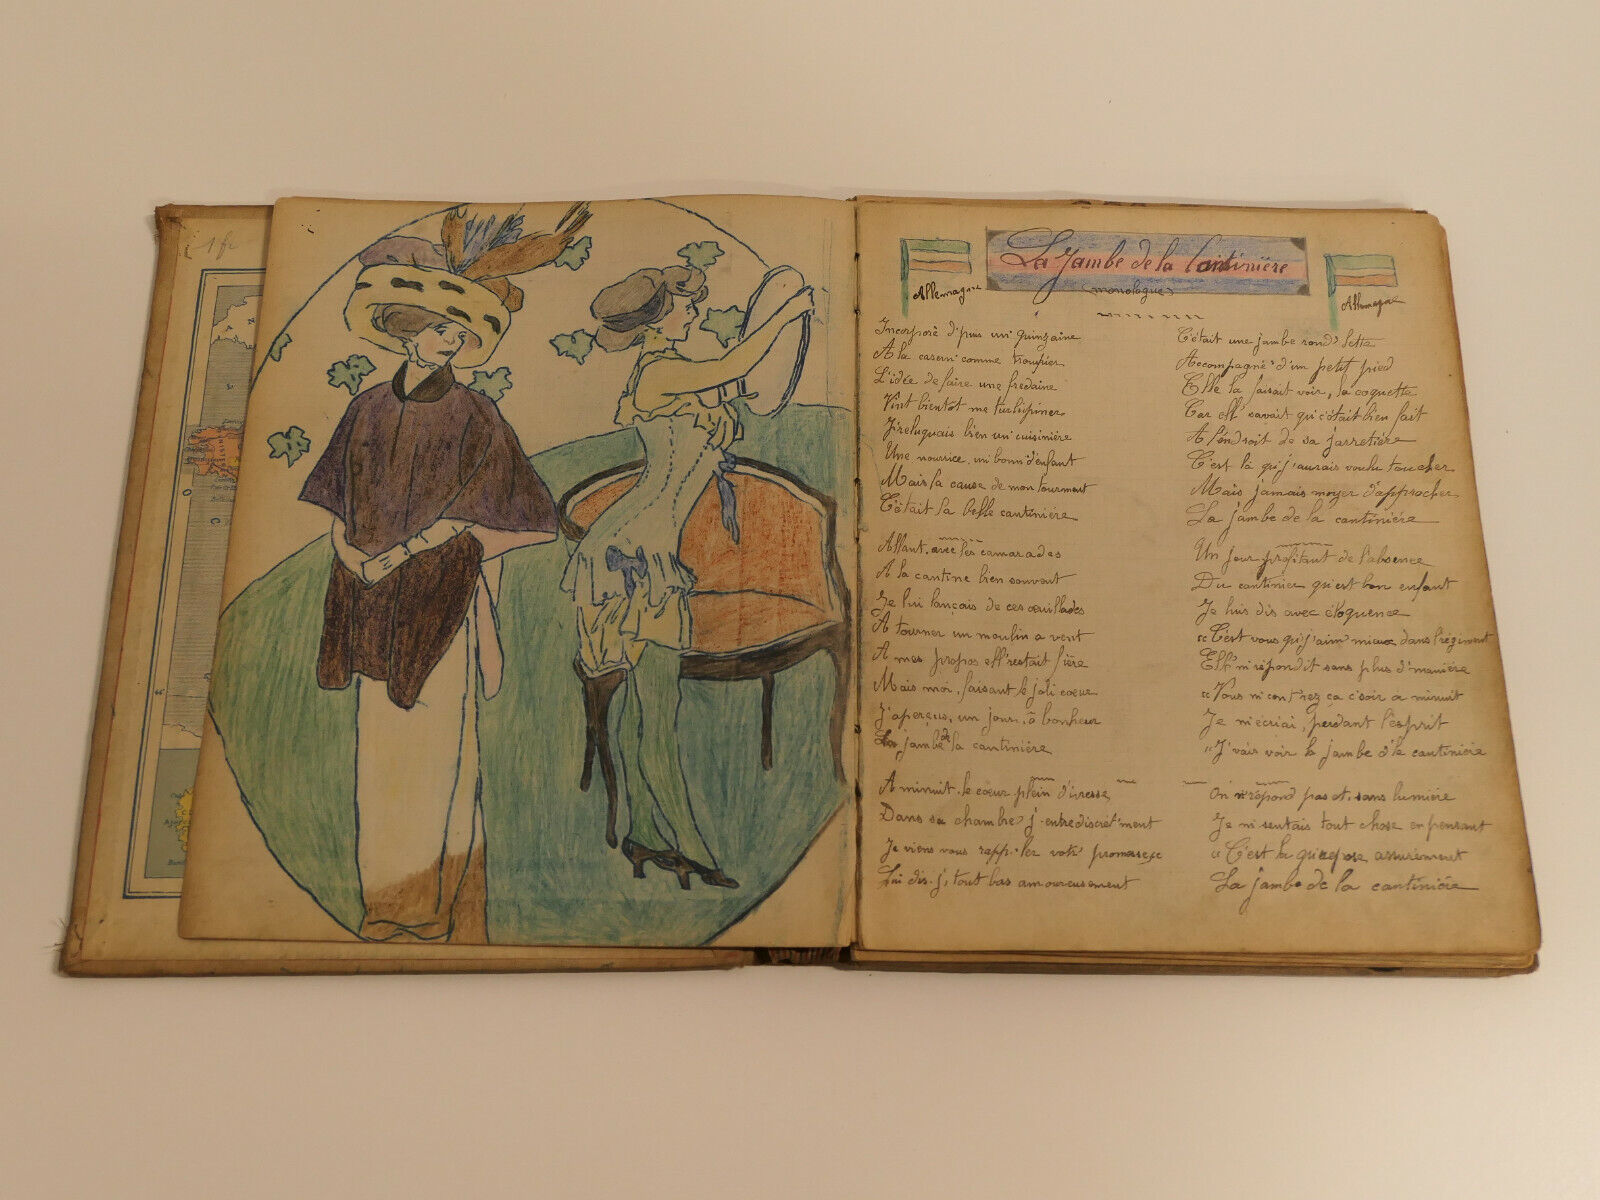 1 fr
La Jambe de la Cantinière
(monologue)
Allemagne
Allemagne
Incorporé d'puis un' quinzaine
A la casern' comme troupier
L'idée de faire une fredaine
Vint bientôt me turlupiner
J'reluquais bien un' cuisinière
Une nourrice, un' bonn' d'enfant
Mais la cause de mon tourment
C'était la belle cantinière
Allant, avec les camarades
A la cantine bien souvent
Je lui lançais de ces œuillades
A tourner un moulin a vent
A mes propos ell' restait fière
Mais moi, faisant le joli cœur
J'aperçus, un jour, ô bonheur
La jambe de la cantinière
A minuit, le cœur plein d'ivresse
Dans sa chambre j'entre discrèt'ment
Je viens vous rapp'ler votr' promesse
Lui dis-j', tout bas amoureusement
C'était une jambe rond'lette
Accompagné' d'un petit pied
Elle la faisait voir, la coquette
Car ell' savait qu'c'était bien fait
A l'endroit de sa jarretière
C'est là qu'j'aurais voulu toucher
Mais jamais moyen d'approcher
La jambe de la cantinière
Un jour profitant de l'absence
Du cantinier qu'est bon enfant
Je lui dis avec éloquence
"C'est vous qu'j'aim' mieux dans l'régiment
Ell' m'répondit sans plus d'manière
"Vous m'cont'rez ça c'soir a minuit
Je m'écriai, perdant l'esprit
"J'vais voir la jambe d'la cantinière
On n'répond pas et, sans lumière
Je m'sentais tout chose en pensant
"C'est la qu'repose assurément
La jambe de la cantinière